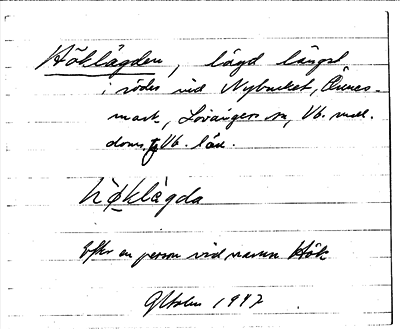 Höklägden, lägd längst
i söder vid Nybruket, Önnes-
mark, Lövångers sn, Vb. mell.
doms., Vb. län.
hø̀klàgda
Efter en person vid namn Hök
1947